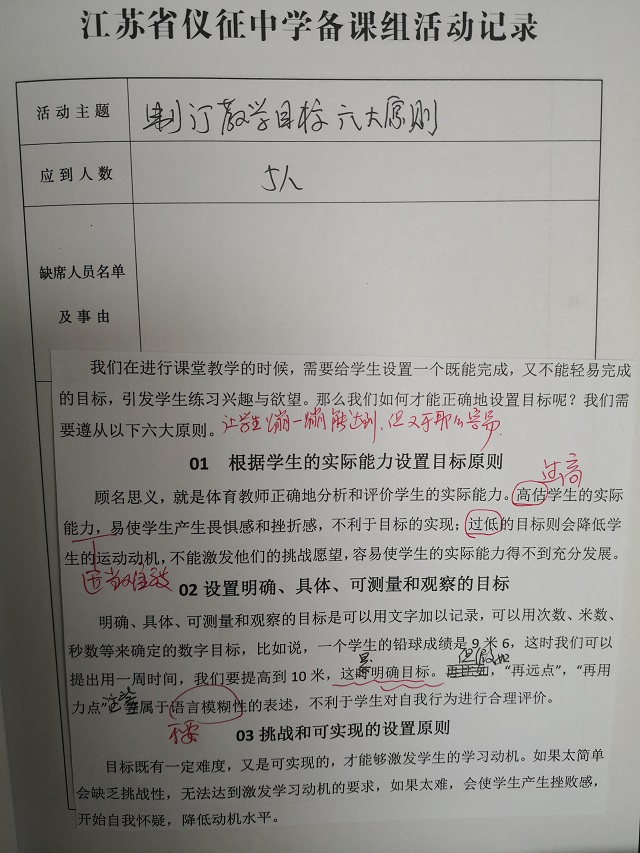 江苏省仪征中学备课组活动记录
活动主题
制订教学目标六大原则
应到人数
5人
缺席人员名单
及事由
我们在进行课堂教学的时候，需要给学生设置一个既能完成，又不能轻易完成
的目标，引发学生练习兴趣与欲望。那么我们如何才能正确地设置目标呢？我们需
要遵从以下六大原则。
让学生蹦一蹦能达到，但又不那么容易
01 根据学生的实际能力设置目标原则
过高
顾名思义，就是体育教师正确地分析和评价学生的实际能力。高估学生的实际
能力，易使学生产生畏惧感和挫折感，不利于目标的实现；过低的目标则会降低学
生的运动动机，不能激发他们的挑战愿望，容易使学生的实际能力得不到充分发展。
02 设置明确、具体、可测量和观察的目标
明确、具体、可测量和观察的目标是可以用文字加以记录，可以用次数、米数、
秒数等来确定的数字目标，比如说，一个学生的铅球成绩是 9 米 6，这时我们可以
提出用一周时间，我们要提高到 10 米，这时明确目标。“再远点”，“再用
力点”属于语言模糊性的表述，不利于学生对自我行为进行合理评价。
不要
03 挑战和可实现的设置原则
目标既有一定难度，又是可实现的，才能够激发学生的学习动机。如果太简单
会缺乏挑战性，无法达到激发学习动机的要求，如果太难，会使学生产生挫败感，
开始自我怀疑，降低动机水平。